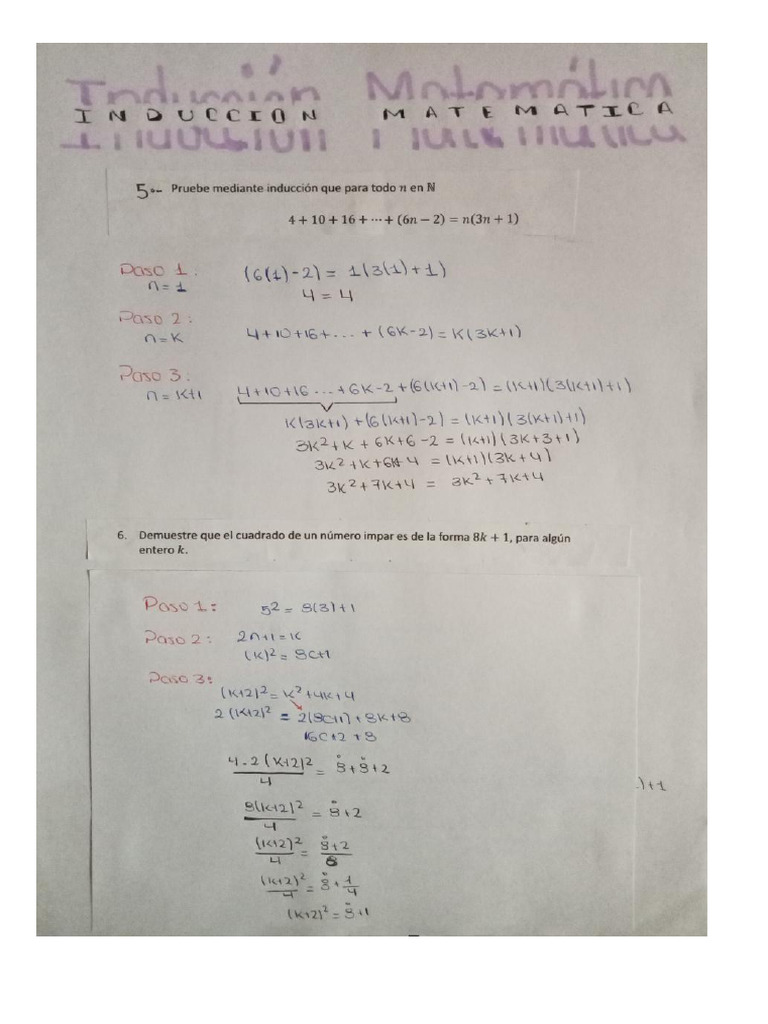 Inducción Matemática
INDUCCION MATEMATICA
5.- Pruebe mediante inducción que para todo n en ℕ
4 + 10 + 16 + ⋯ + (6n − 2) = n(3n + 1)
Paso 1: (6(1)-2) = 1(3(1)+1)
n=1 4 = 4
Paso 2:
n=K 4+10+16+...+(6K-2)=K(3K+1)
Paso 3:
n=K+1 4+10+16...+6K-2+(6(K+1)-2)=(K+1)(3(K+1)+1)
K(3K+1)+(6(K+1)-2)=(K+1)(3(K+1)+1)
3K²+K+6K+6-2=(K+1)(3K+3+1)
3K²+K+6K+4=(K+1)(3K+4)
3K²+7K+4 = 3K²+7K+4
6. Demuestre que el cuadrado de un número impar es de la forma 8k + 1, para algún
entero k.
Paso 1: 5² = 8(3)+1
Paso 2: 2n+1=K
(K)² = 8C+1
Paso 3:
(K+2)²=K²+4K+4
2(K+2)² = 2(8C+1)+8K+8
16C+2+8
4·2(K+2)²/4 = 8̊+8̊+2
8(K+2)²/4 = 8̊+2
(K+2)²/4 = 8̊+2/8
(K+2)²/4 = 8̊+1/4
(K+2)²=8̊+1
)+1